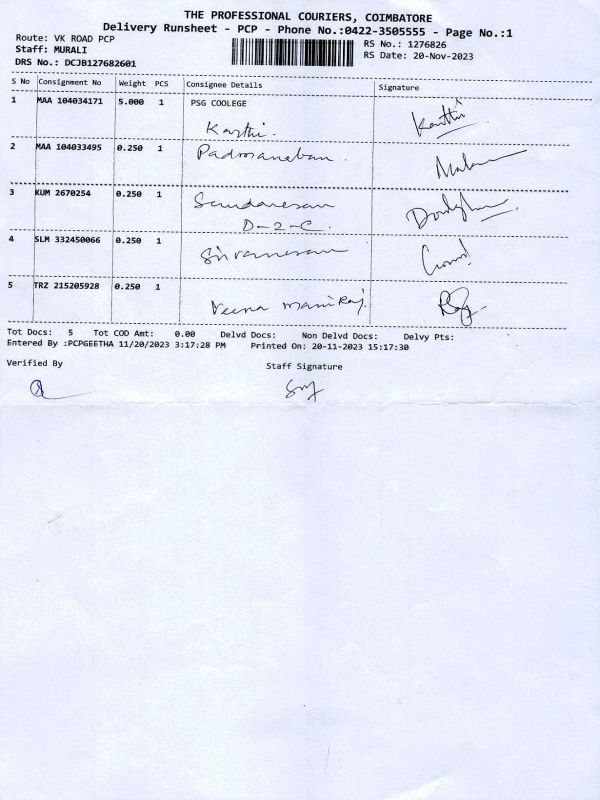 THE PROFESSIONAL COURIERS, COIMBATORE
Delivery Runsheet - PCP - Phone No.:0422-3505555 - Page No.:1
Route: VK ROAD PCP RS No.: 1276826
Staff: MURALI RS Date: 20-Nov-2023
DRS No.: DCJB127682601
S No Consignment No Weight PCS Consignee Details Signature
1 MAA 104034171 5.000 1 PSG COOLEGE
Karthi. Karthi
2 MAA 104033495 0.250 1 Padmanaban.
3 KUM 2670254 0.250 1 Sundaresan
D-2-C.
4 SLM 332450066 0.250 1
5 TRZ 215205928 0.250 1
Veena Maniraj.
Tot Docs: 5 Tot COD Amt: 0.00 Delvd Docs: Non Delvd Docs: Delvy Pts:
Entered By :PCPGEETHA 11/20/2023 3:17:28 PM Printed On: 20-11-2023 15:17:30
Verified By Staff Signature